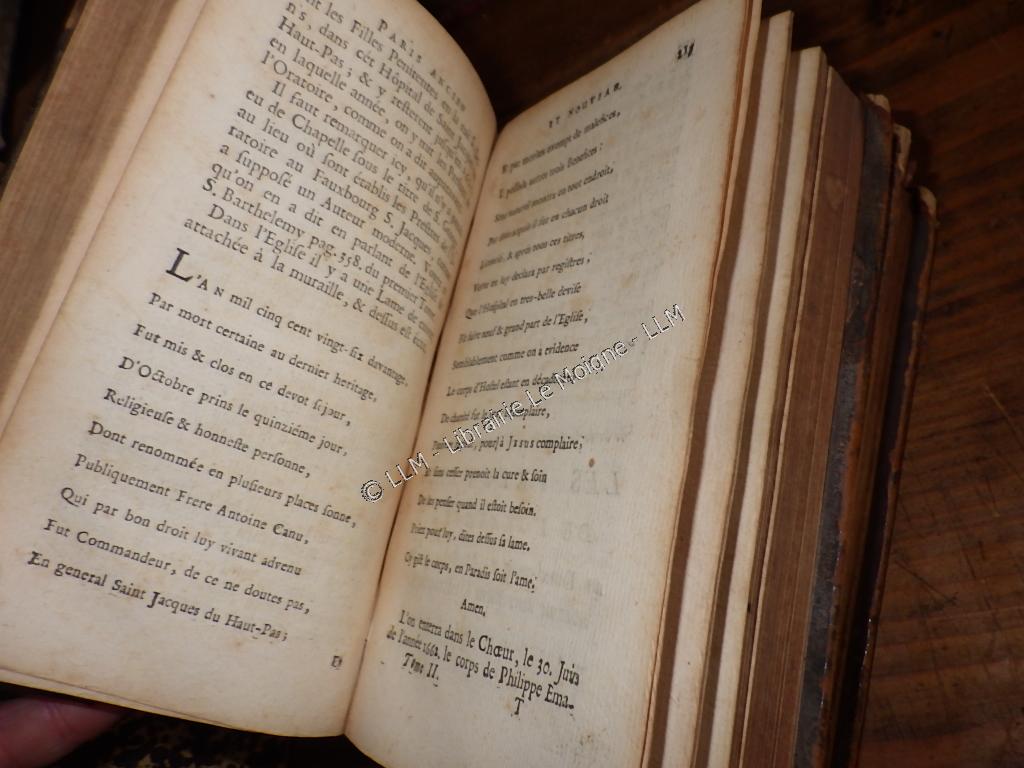 PARIS ANCIEN
les Filles Penitentes en la
n's, dans cét Hôpital de Saint Jacques
Haut-Pas; & y resterent jusqu'en
en laquelle année, on y mit les
l'Oratoire, comme on a dit
Il faut remarquer icy, qu'il n'y a
eu de Chapelle sous le titre de S.
au lieu où sont établis les Prestres de
ratoire au Fauxbourg S. Jacques, comme
a supposé un Auteur moderne. Voyez
qu'on en a dit en parlant de l'Eglise
S. Barthelemy pag. 358. du premier Tome
Dans l'Eglise il y a une Lame de cuivre
attachée à la muraille, & dessus est écrit
L'AN mil cinq cent vingt-six davantage,
Par mort certaine au dernier heritage,
Fut mis & clos en cé devot sejour,
D'Octobre prins le quinziéme jour,
Religieuse & honneste personne,
Dont renommée en plusieurs places sonne,
Publiquement Frere Antoine Canu,
Qui par bon droit luy vivant advenu
Fut Commandeur, de ce ne doutes pas,
En general Saint Jacques du Haut-Pas;
ET NOUVEAU.
merites exempt de malefices,
Il possede autres trois Benefices:
naturel montra en tout endroit,
sur en chacun droit
Licentié, & après tous ces titres,
Vertu en luy declara par registres;
Que l'Hospital en tres-belle devise
Fit faire neuf & grand part de l'Eglise,
Semblablement comme on a evidence
Le corps d'Hostel estant en
De charité fut
à JESUS complaire,
cesser prenoit la cure & soin
De les penser quand il estoit besoin.
Priez pour luy, dites dessus sa lame,
Cy gist le corps, en Paradis soit l'ame,
Amen.
L'on enterra dans le Chœur, le 30. Juin
de l'année 1662. le corps de Philippe Ema-
Tome II.
T
© LLM - Librairie Le Moigne - LLM